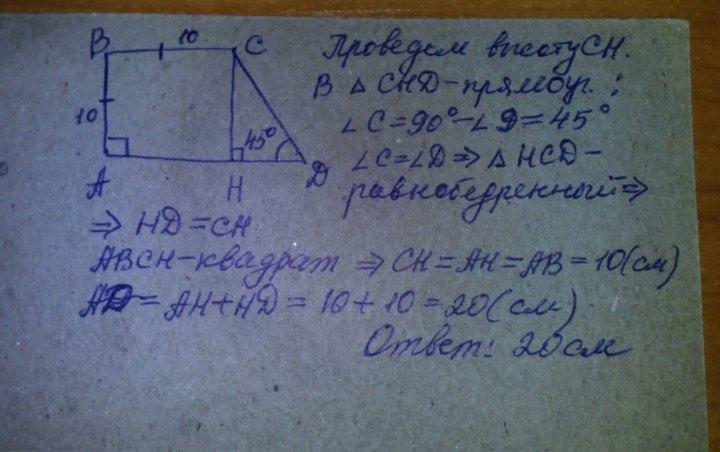 B 10 C
10
45°
A H D
Проведем высоту CH.
В △ CHD-прямоуг. :
∠C=90°-∠D=45°
∠C=∠D⇒△HCD-
равнобедренный⇒
⇒ HD=CH
ABCH-квадрат ⇒ CH=AH=AB=10(см)
AD=AH+HD=10+10=20(см)
Ответ: 20см